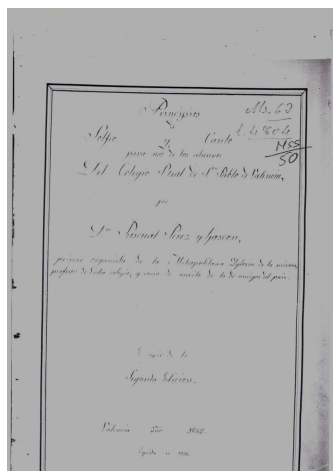 Principios
de
Solfeo y Canto
para uso de los alumnos
Del Colegio Real de Sn. Pablo de Valencia,
por
Dn. Pascual Perez y Gascon,
primer organista de la Metropolitana Iglesia de la misma,
profesor de dicho colegio, y socio de merito de la de amigos del pais.
Copia de la
Segunda Edicion.
Valencia Año
Ms. 62
MSS
50